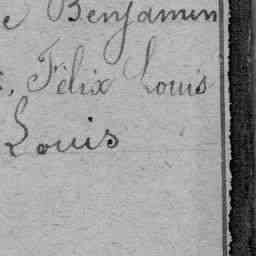 e Benjamin
, Félix Louis
Louis